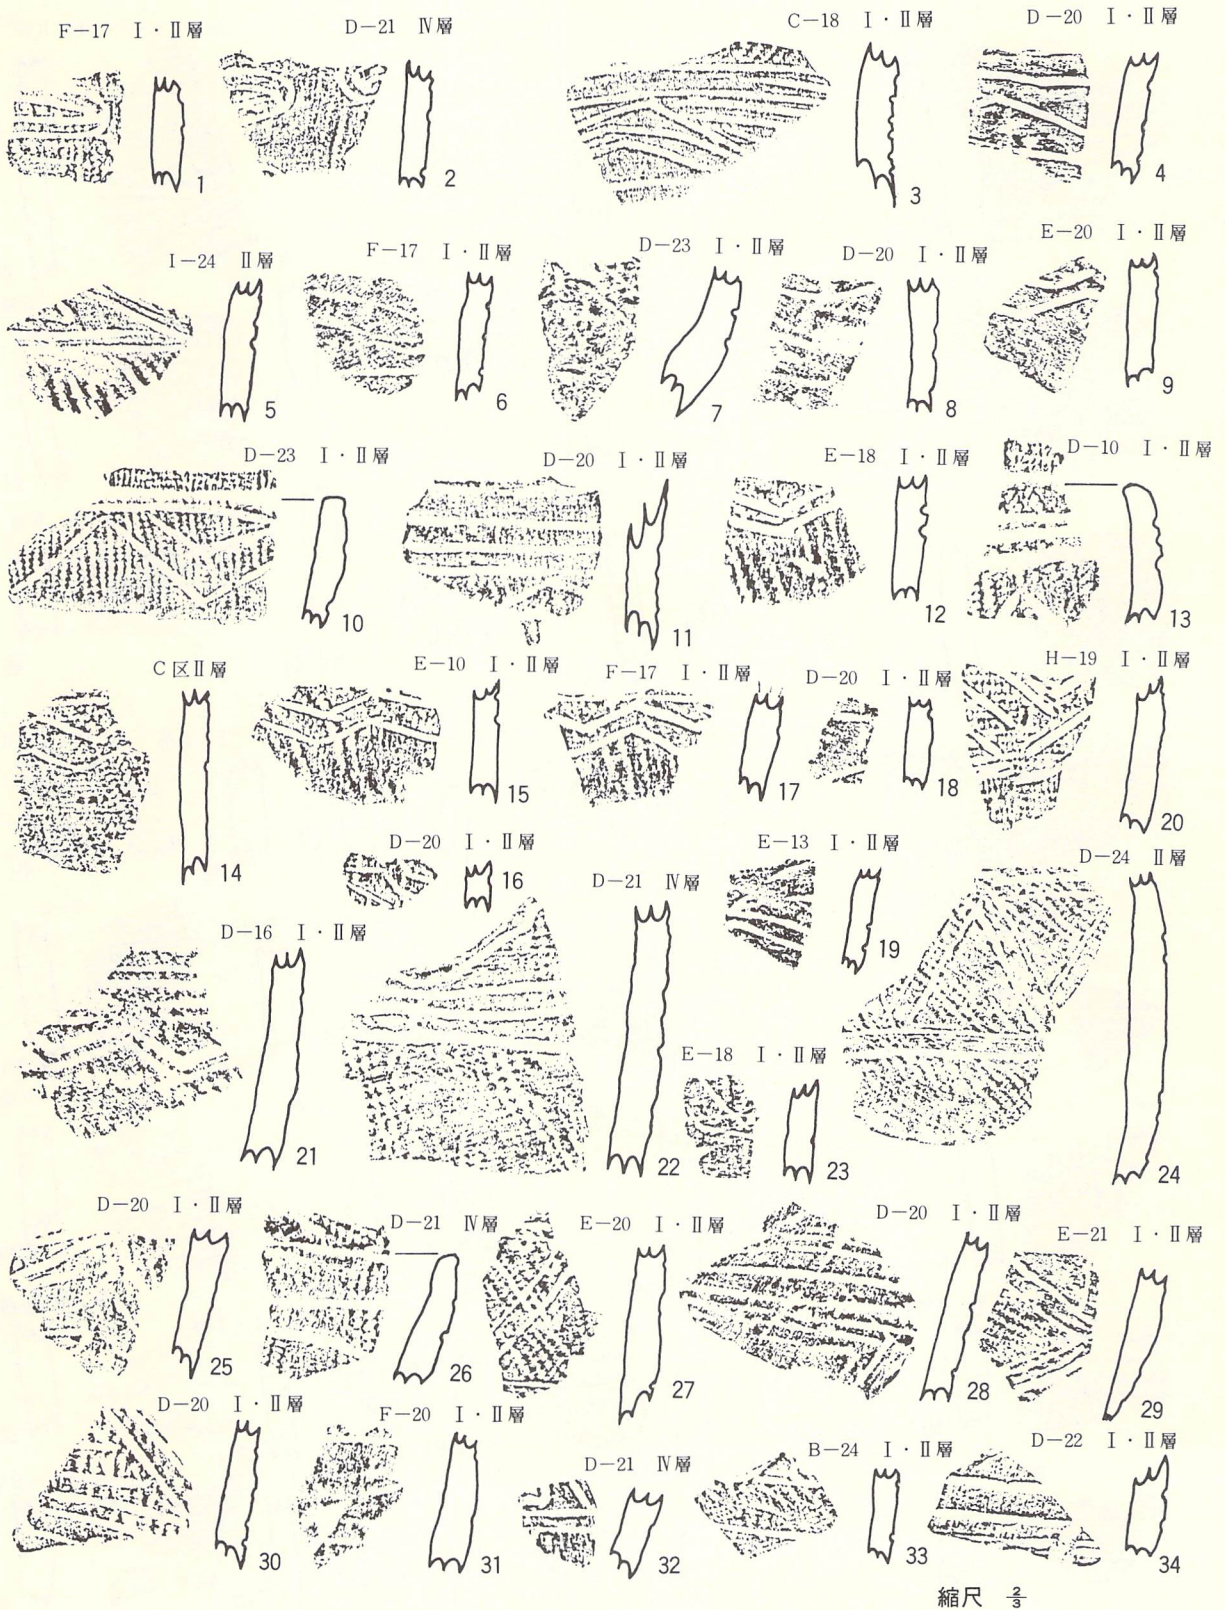 F−17 Ⅰ・Ⅱ層
1
D−21 Ⅳ層
2
C−18 Ⅰ・Ⅱ層
3
D−20 Ⅰ・Ⅱ層
4
I−24 Ⅱ層
5
F−17 Ⅰ・Ⅱ層
6
D−23 Ⅰ・Ⅱ層
7
D−20 Ⅰ・Ⅱ層
8
E−20 Ⅰ・Ⅱ層
9
D−23 Ⅰ・Ⅱ層
10
D−20 Ⅰ・Ⅱ層
11
E−18 Ⅰ・Ⅱ層
12
D−10 Ⅰ・Ⅱ層
13
C区Ⅱ層
14
E−10 Ⅰ・Ⅱ層
15
D−20 Ⅰ・Ⅱ層
16
F−17 Ⅰ・Ⅱ層
17
D−20 Ⅰ・Ⅱ層
18
E−13 Ⅰ・Ⅱ層
19
H−19 Ⅰ・Ⅱ層
20
D−16 Ⅰ・Ⅱ層
21
D−21 Ⅳ層
22
E−18 Ⅰ・Ⅱ層
23
D−24 Ⅱ層
24
D−20 Ⅰ・Ⅱ層
25
D−21 Ⅳ層
26
E−20 Ⅰ・Ⅱ層
27
D−20 Ⅰ・Ⅱ層
28
E−21 Ⅰ・Ⅱ層
29
D−20 Ⅰ・Ⅱ層
30
F−20 Ⅰ・Ⅱ層
31
D−21 Ⅳ層
32
B−24 Ⅰ・Ⅱ層
33
D−22 Ⅰ・Ⅱ層
34
縮尺 2/3